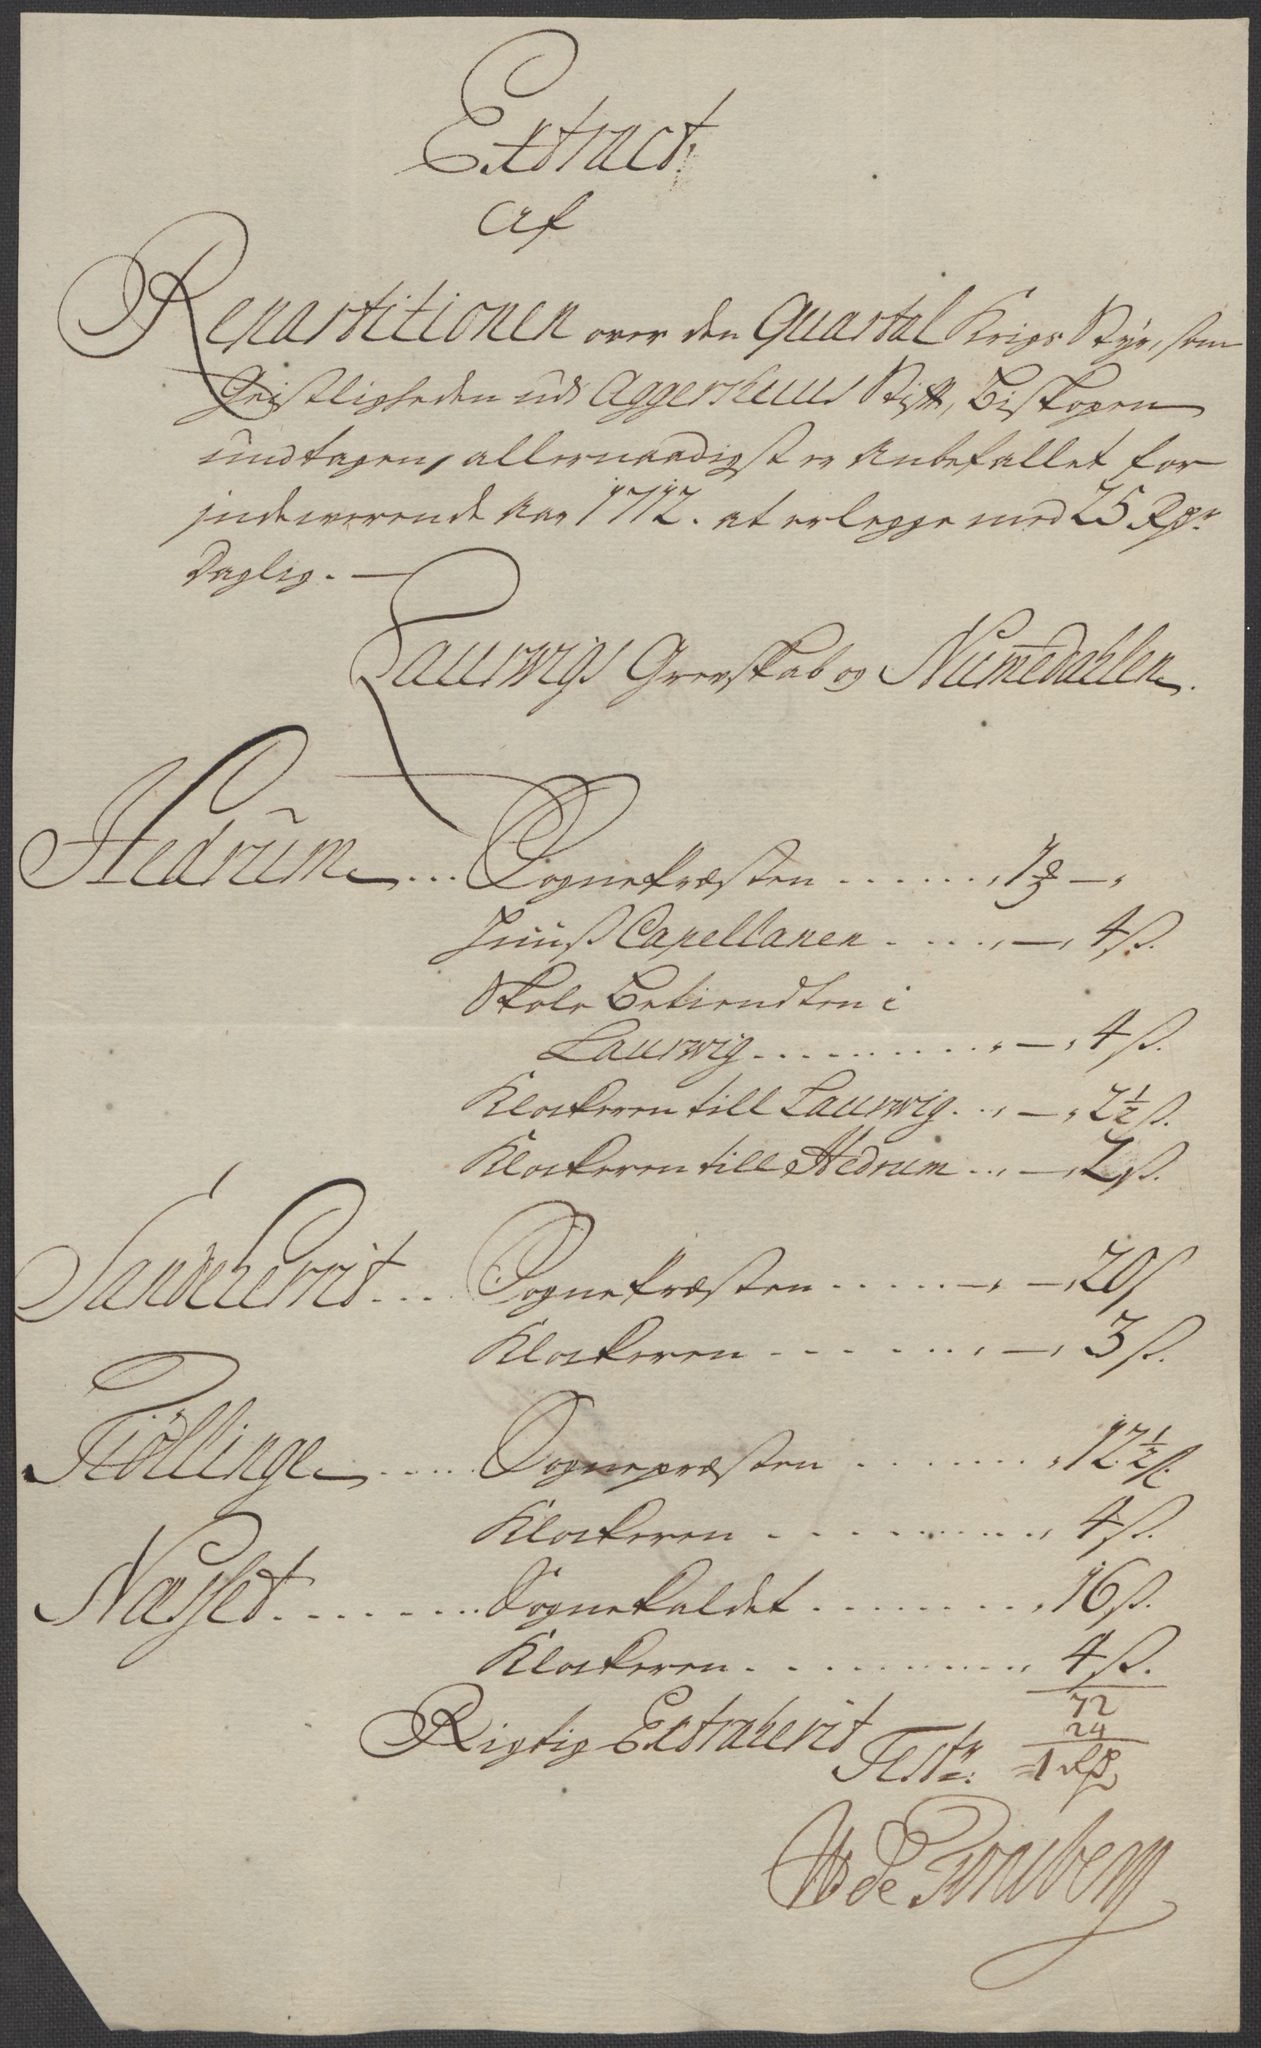 Extract
Af
Repartitionen over den Quartal Krigs Styr, som
Geistligheden udj Aggerhuus Stift, Biskopen
undtagen, allernaadigst er Anbefallet for
indeværende Aar 1712. at erlegge med 25 Rdr
Daglig. —
Laurwigs Grevskab og Numedahlen.
Hedrum .... Sognepræsten ....... 1 —
Huuß Capellanen ..... — 4 ß.
Skole Betiendten i
Laurwig .......... — 4 ß.
Klockeren till Laurwig ... — 2½ ß.
Klockeren till Hedrum ... — 2 ß.
Sandeherrit .... Sognepræsten ....... — 20 ß
Klockeren ....... — 3 ß.
Tiöllinge ..... Sognepræsten ....... 12½ ß.
Klockeren ......... 4 ß.
Næsset ........ Sognekaldet ........ 16 ß.
Klockeren .......... 4 ß.
72
24
Rigtig Extraherit Test: 1 Rd